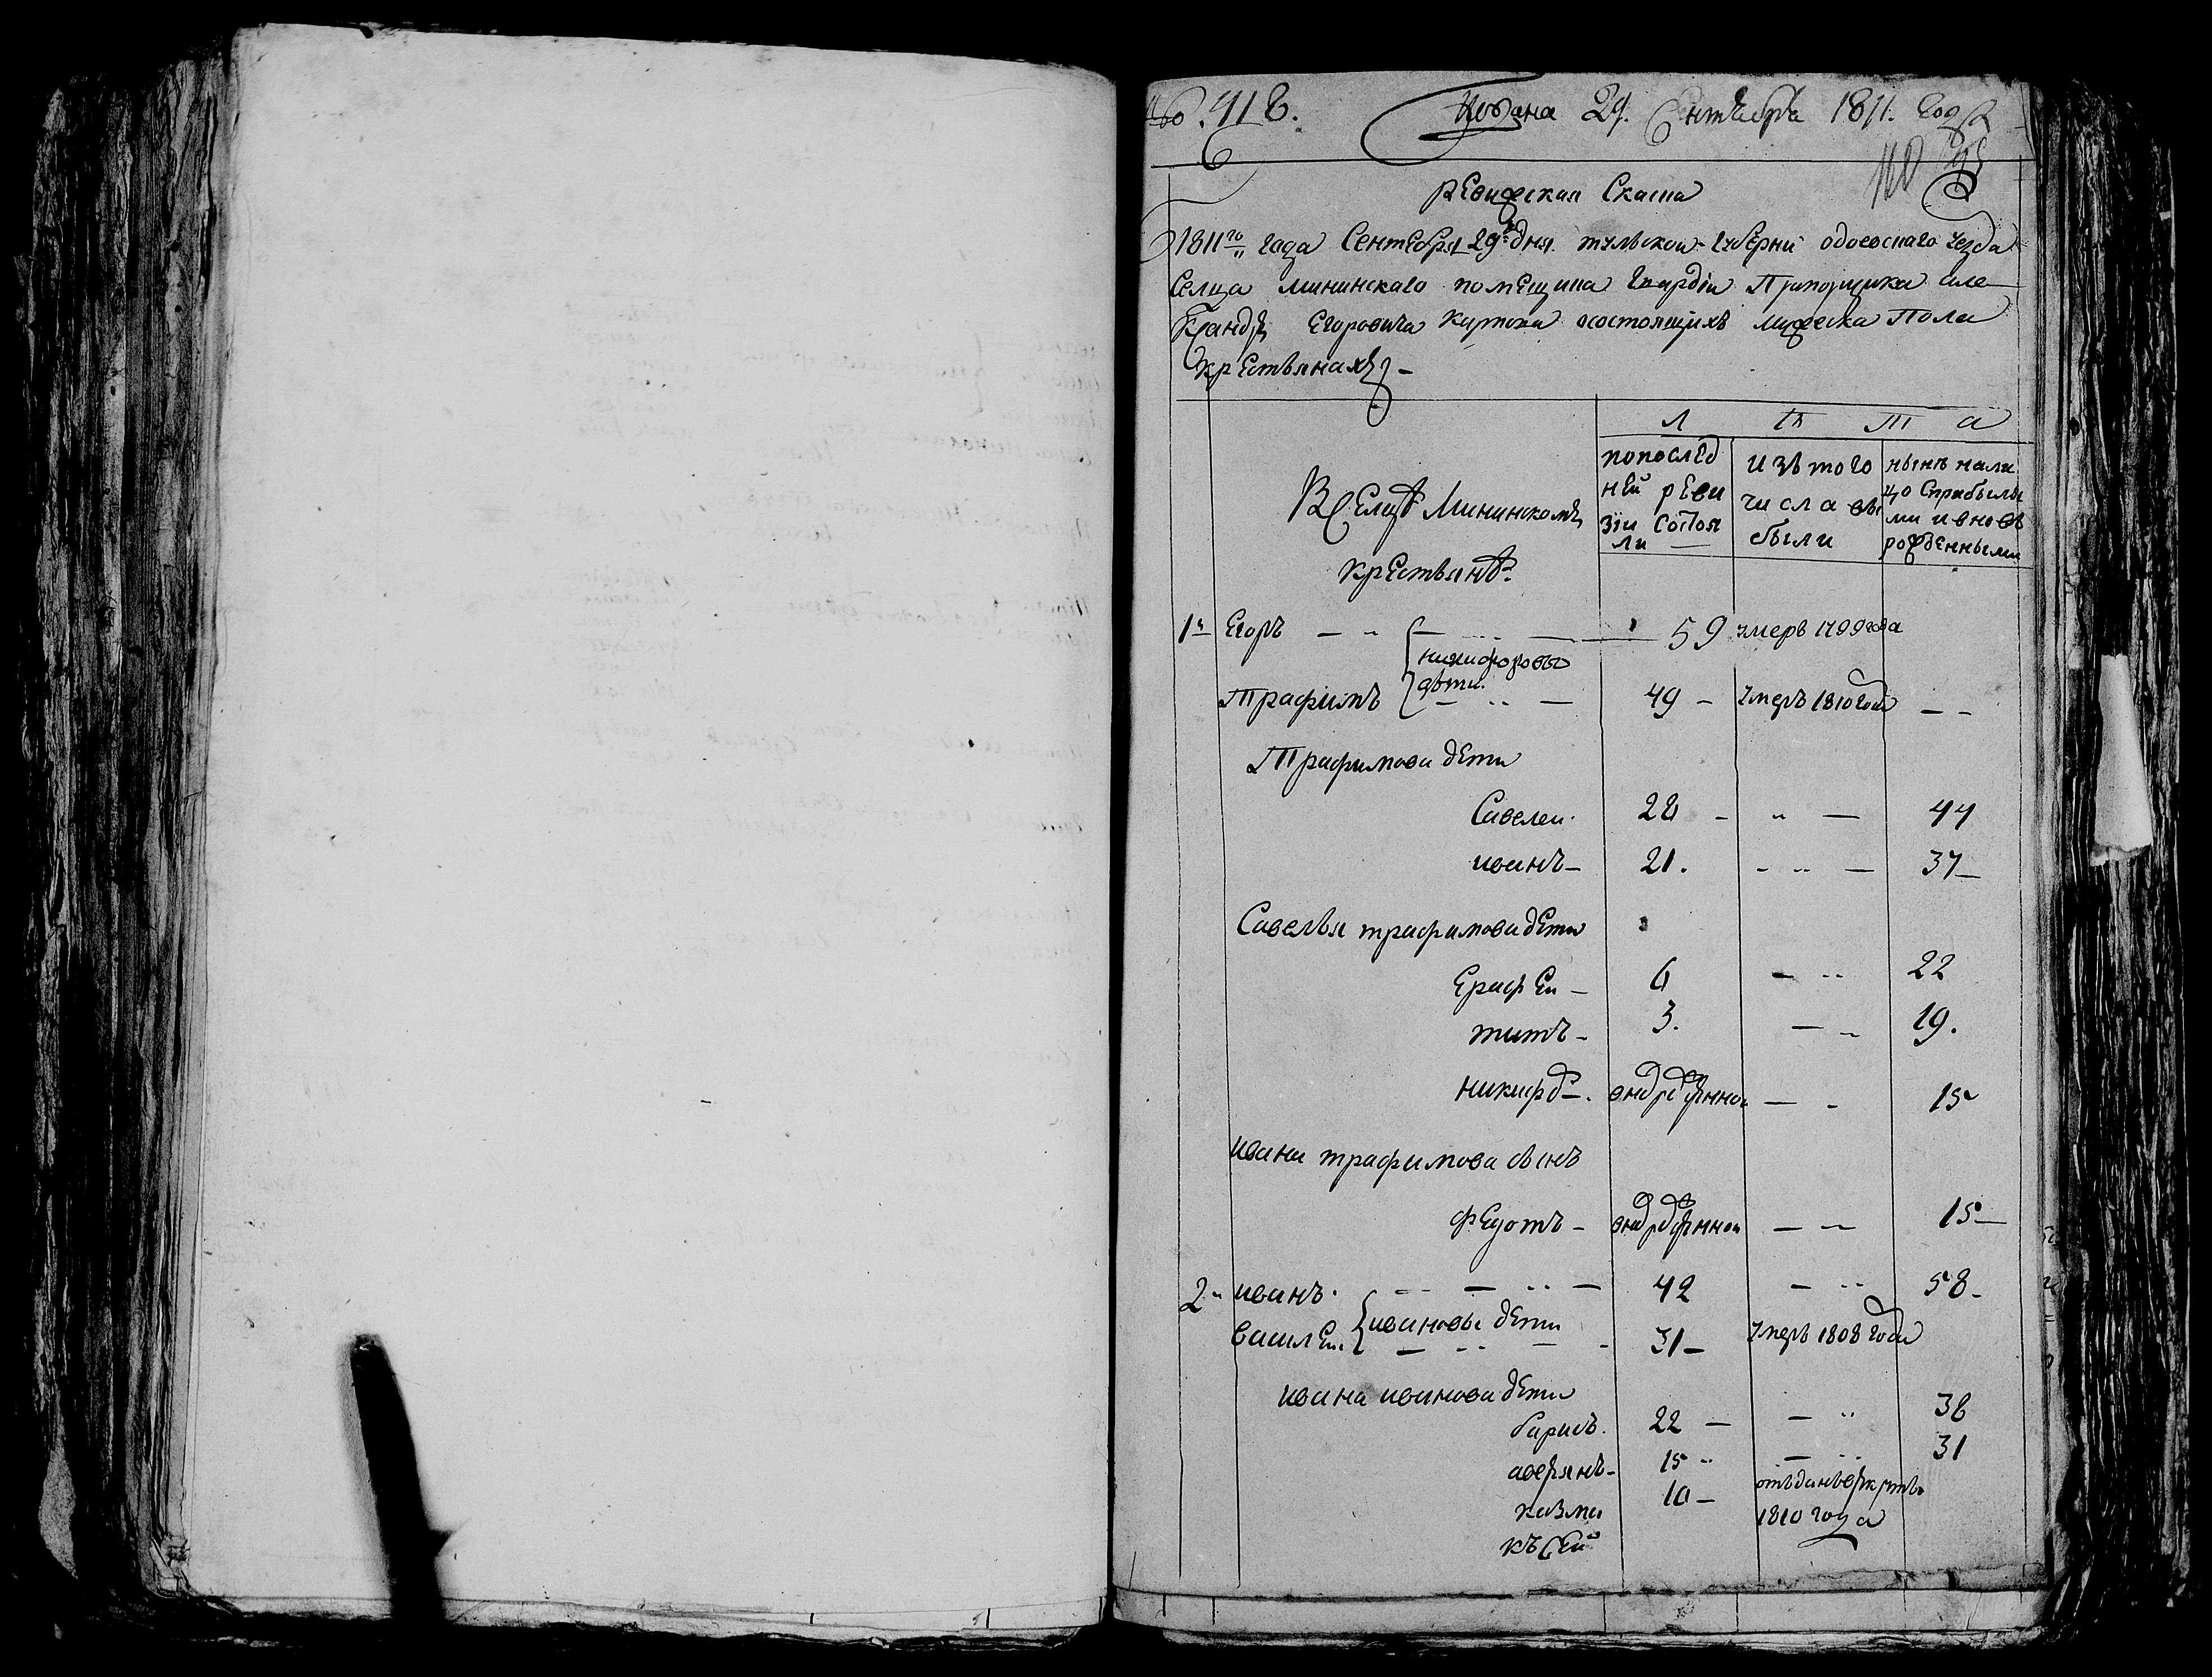 № 418. Подана 29. Сентября 1811. года
110
ревижская Скаска
1811го года Сентебря 29го дня тульской губерни одоевскаго уезда
Селца мининскаго помещика гвардіи Прапорщика але
ксандра Егоровича осостоящихъ мужеска пола
крестьянахъ
Л ѣ т а
В Селцѣ Мининскомъ
крестьянѣ
попослед
ней реви
зіи Состоя
ли
изъ того
числа вы
были
нынѣ нали
цо Сприбылы
ми ивновь
рожденными
1й Егоръ 59 умеръ 1799 года
никифоровы
дѣти
Трафимъ 49 умеръ 1810 года
Трафимова дети
Савелеи 28 44
иванъ 21. 37
Савелья трафимова дети
Ерафеи 6 22
титъ 3. 19.
никифоръ 15
ивана трафимова сынъ
федотъ 15
2й иванъ 42 58
ивановы дети
василеи 31 умеръ 1808 года
ивана иванова дети
барисъ 22 38
аверянъ 15 31
казма 10 отъданъ врекруты
1810 года
къ Сей